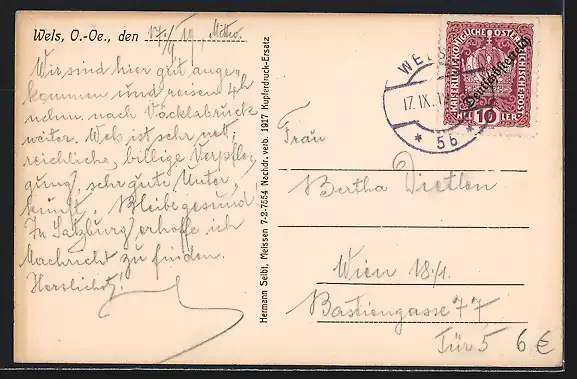 Wels, O.-Oe., den 17./9 19, Mittw.
Wir sind hier gut ange-
kommen und reisen 4h
nchm. nach Vöcklabruck
weiter. Wels ist sehr nett,
reichliche, billige Verpfle-
gung, sehr gute Unter-
kunft. Bleibe gesund
In Salzburg erhoffe ich
Nachricht zu finden.
Herzlichst!
Hermann Seibt, Meissen 7-2-7554 Nachdr. verb. 1917 Kupferdruck-Ersatz
KAISERLICHE KÖNIGLICHE ÖSTERREICHISCHE POST
Deutschösterreich
HELLER
10
WELS
17. IX. 19
* 5b *
Frau
Bertha Dietlen
Wien 18/1.
Bastiengasse 77
Tür 5
6 €